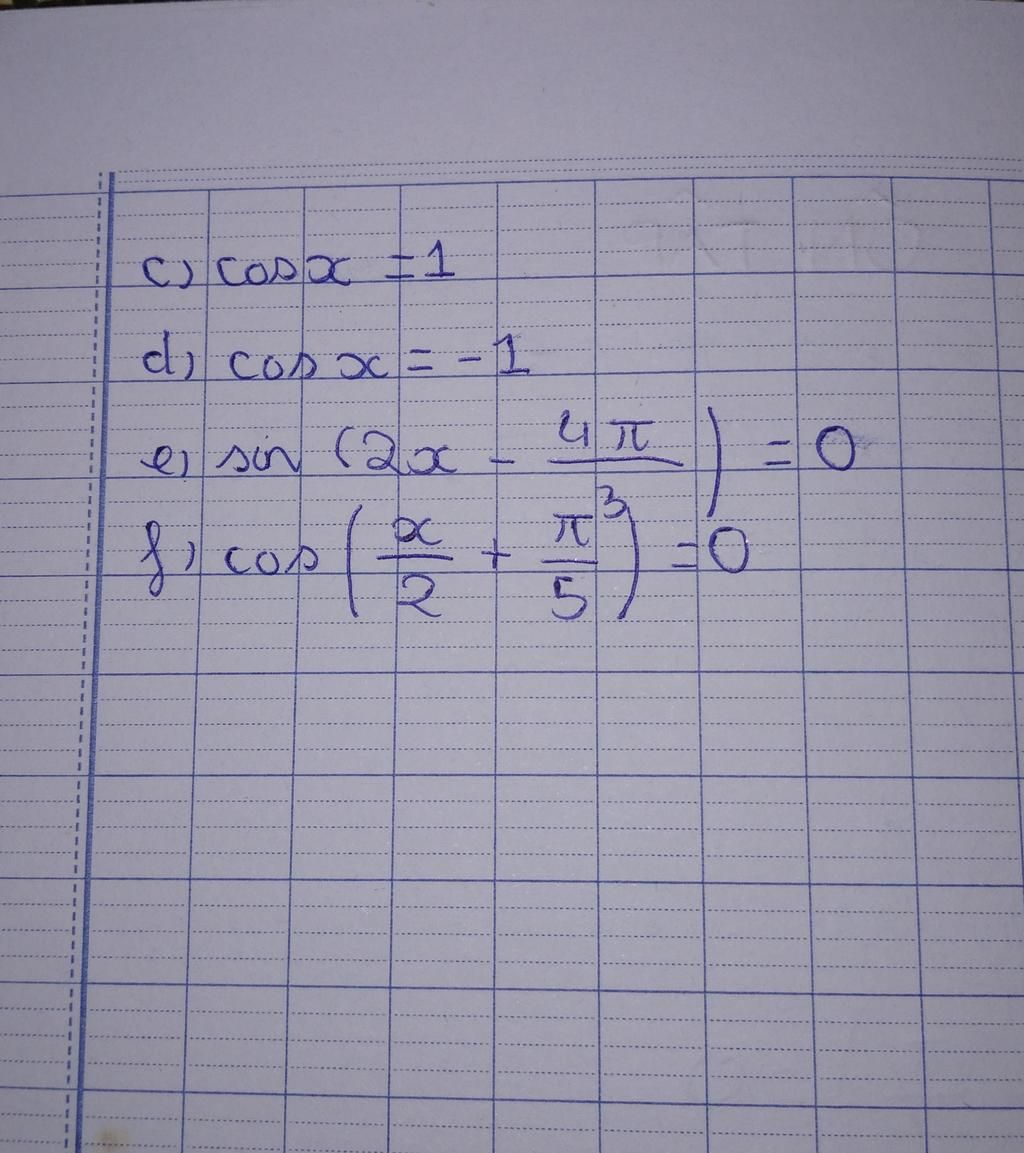 c) cos x = 1
d) cos x = -1
e) sin (2x - 4π/3) = 0
f) cos (x/2 + π/5) = 0